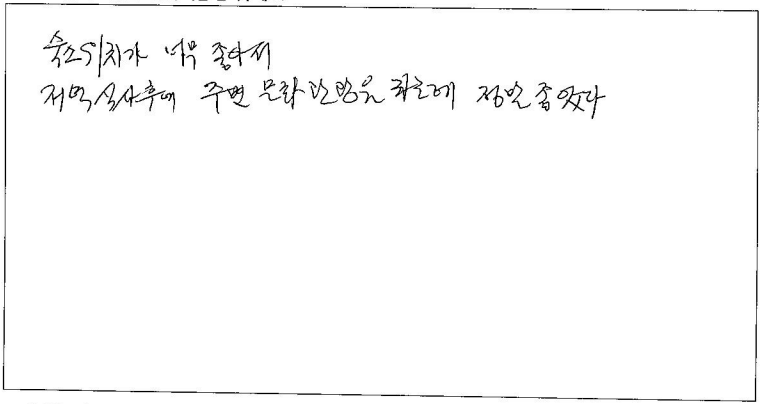 숙소위치가 너무 좋아서
저녁식사후에 주변 문화탐방을 정말 좋았다